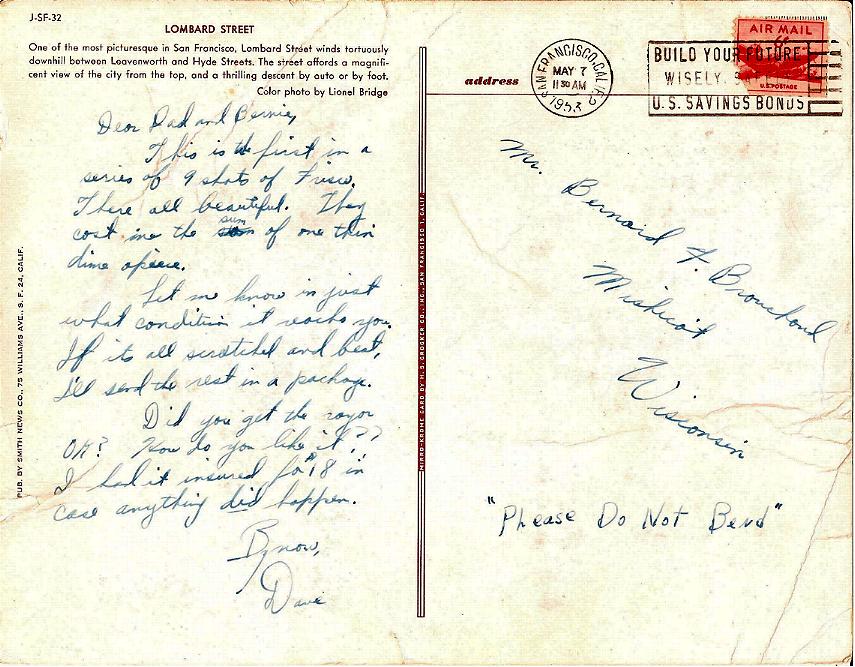 J-SF-32
LOMBARD STREET
One of the most picturesque in San Francisco, Lombard Street winds tortuously
downhill between Leavenworth and Hyde Streets. The street affords a magnifi-
cent view of the city from the top, and a thrilling descent by auto or by foot.
Color photo by Lionel Bridge
Dear Dad and Bernie,
This is the first in a
series of 9 shots of Frisco.
There all beautiful. They
cost me the sum of one thin
dime apiece.
Let me know in just
what condition it reachs you.
If its all scratched and beat,
I'll send the rest in a package.
Did you get the razor
OK? How do you like it??
I had it insured for $18 in
case anything did happen.
Bynow,
Dave
PUB. BY SMITH NEWS CO., 75 WILLIAMS AVE., S. F. 24, CALIF.
MIRRO-KROME CARD BY H. S. CROCKER CO., INC., SAN FRANCISCO 1, CALIF.
address
SAN FRANCISCO, CALIF.
MAY 7
11 30 AM
1953
BUILD YOUR FUTURE
WISELY,
U.S. SAVINGS BONDS
AIR MAIL
6¢
U.S. POSTAGE
Mr. Bernard F. Brouchoud
Mishicot
Wisconsin
"Please Do Not Bend"